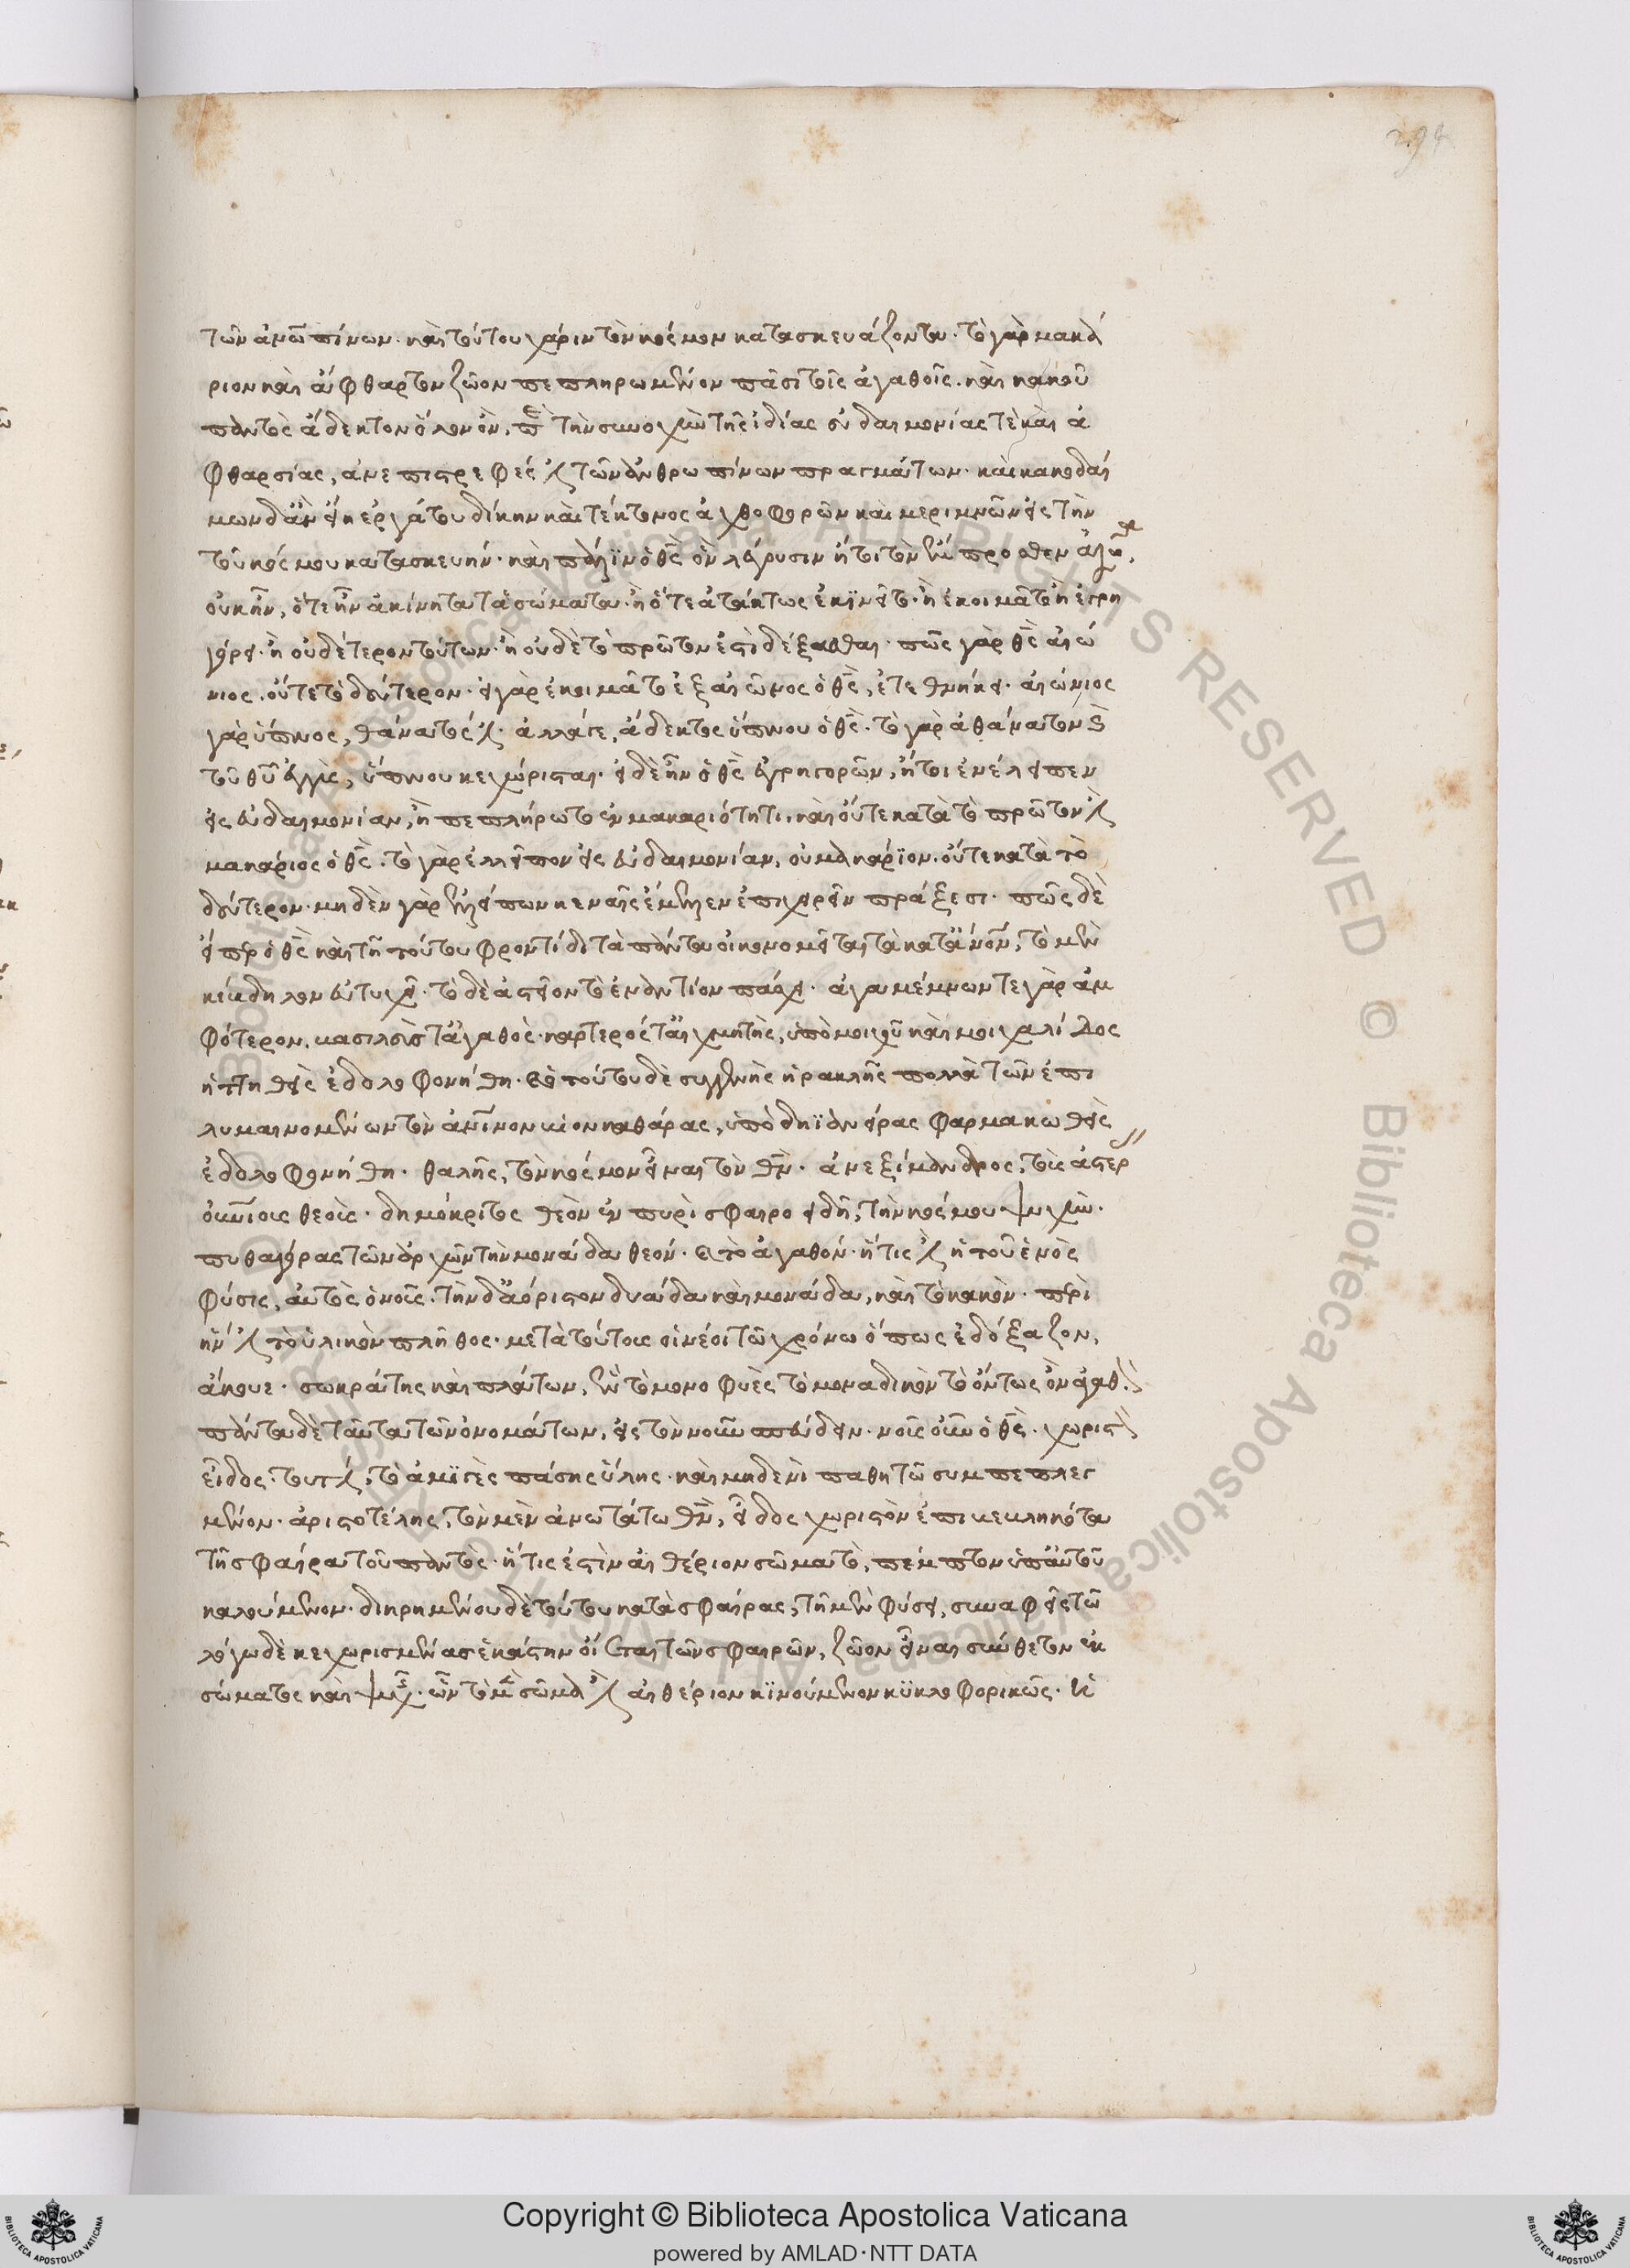 294
τῶν ἀν̅ω̅πίνων· καὶ τούτου χάριν τὸν κόσμον κατασκευάζοντα· τὸ γὰρ μακά
ριον καὶ ἄφθαρτον ζῶον πεπληρωμένον πᾶσι τοῖς ἀγαθοῖς. καὶ κακοῦ
παντὸς ἄδεκτον ὅλον ὂν, τὴν συνοχὴν τῆς ἰδίας εὐδαιμονίας τὲ καὶ ἀ
φθαρσίας, ἀνεπιστρεφές ἐστι τῶν ἀνθρωπίνων πραγμάτων· κακοδαί
μων δ' ἂν εἴη ἐργάτου δίκην καὶ τέκτονος ἀχθοφορῶν καὶ μεριμνῶν εἰς τὴν
τοῦ κόσμου κατασκευήν· καὶ πάλϊν ὁ θ̅ς̅ ὃν λέγουσιν ἤτοι τὸν ἔμπροσθεν αἰῶνα,
οὐκ ἦν, ὅτε ἦν ἀκίνητα τὰ σώματα· ἢ ὅτε ἀτάκτως ἐκϊνεῖτο· ἢ ἐκοιμᾶτο ἢ ἐγρη
γόρει· ἢ οὐδέτερον τούτων· ἢ οὐδὲ τὸ πρῶτον ἐστὶ δέξασθαι· πῶς γὰρ θ̅ς̅ αἰώ
νιος. οὔτε τὸ δεύτερον· εἰ γὰρ ἐκοιμᾶτο ἐξ αἰῶνος ὁ θ̅ς̅, ἐτεθνήκει· αἰώνιος
γὰρ ὕπνος, θάνατός ἐστι· ἀλλά γε, ἄδεκτος ὕπνου ὁ θ̅ς̅· τὸ γὰρ ἀθάνατον
τοῦ θ̅υ̅ ὕπνου κεχώρισται· εἰ δὲ ἦν ὁ θ̅ς̅ ἐγρηγορῶν, ἤτοι ἐνέλειπεν
εἰς εὐδαιμονίαν, ἢ πεπλήρωτο ἐν μακαριότητι· καὶ οὔτε κατὰ τὸ πρῶτον ἐστὶ
μακάριος ὁ θ̅ς̅· τὸ γὰρ ἐλλεῖπον εἰς εὐδαιμονίαν, οὐ μακάρϊον. οὔτε κατὰ τὸ
δεύτερον· μηδὲν γὰρ ἐλλείπων κεναῖς ἔμελλεν ἐπιχειρεῖν πράξεσι· πῶς δὲ
εἴπερ ὁ θ̅ς̅ καὶ τῆ τούτου φροντίδι τὰ πάντα οἰκονομεῖται τὸ μὲν
κίβδηλον εὐτυχεῖ· τὸ δὲ ἀστεῖον τὸ ἐναντίον πάσχει· ἀγαμέμνων τε γὰρ ἀμ
φότερον, βασιλεύς τ' ἀγαθὸς· κρατερός τ' αἰχμητὴς, ὑπὸ μοιχοῦ καὶ μοιχαλίδος
ἡττηθεὶς ἐδολοφονήθη· τούτου δὲ συγγενὴς ἡρακλῆς πολλὰ τῶν ἐπι
λυμαινομένων τὸν ἀν̅ῖ̅νον βίον καθάρας, ὑπὸ δηϊανείρας φαρμακωθεὶς
ἐδολοφονήθη· θαλῆς, τὸν κόσμον εἶναι τὸν θ̅ν̅· ἀνεξίμανδρος, τοὺς ἀστέρας
οὐνίους θεούς· δημόκριτος θεὸν ἐν πυρὶ σφαιροειδῆ, τὴν κόσμου ψυχὴν·
πυθαγόρας τῶν ἀρχῶν τὴν μονάδα θεόν· τὸ ἀγαθόν· ἥτις ἐστὶ ἡ τοῦ ἑνὸς
φύσις, αὐτὸς ὁ νοῦς· τὴν δ' ἀόριστον δυάδα καὶ μονάδα, καὶ τὸ κακὸν· περὶ
ἥν ἐστι τὸ ὑλικὸν πλῆθος· μετὰ τούτοις οἱ νέοι τῶ χρόνω ὅπως ἐδόξαζον,
ἄκουε· σωκράτης καὶ πλάτων, ἓν τὸ μονοφυὲς τὸ μοναδικὸν τὸ ὄντως ὂν ἀγαθ.
πάντα δὲ ταῦτα τῶν ὀνομάτων, εἰς τὸν νοῦν σπεύδειν· νοῦς οὖν ὁ θ̅ς̅· χωριστὸν
εἶδος· τουτέστι, τὸ ἀμϊγὲς πάσης ὕλης· καὶ μηδενὶ παθητῶ συμπεπλεγ
μένον· ἀριστοτέλης, τὸν μὲν ἀνωτάτω θ̅ν̅, εἶδος χωριστὸν ἐπικεκληκότα
τῆ σφαίρα τοῦ παντὸς· ἥτις ἐστὶν αἰθέριον σῶμα τὸ, πέμπτον ὑπ' αὐτοῦ
καλούμενον· διηρημένου δὲ τούτου κατὰ σφαίρας, τῆ μὲν φύσει, συναφεῖς τῶ
λόγω δὲ κεχωρισμένας ἑκάστην οἴεται τῶν σφαιρῶν, ζῶον εἶναι σύνθετον ἐκ
σώματος καὶ ψυχῆς· ὧν τὸ μὲν σῶμά ἐστι αἰθέριον κϊνούμενον κϋκλοφορικῶς·
Copyright © Biblioteca Apostolica Vaticana
powered by AMLAD·NTT DATA